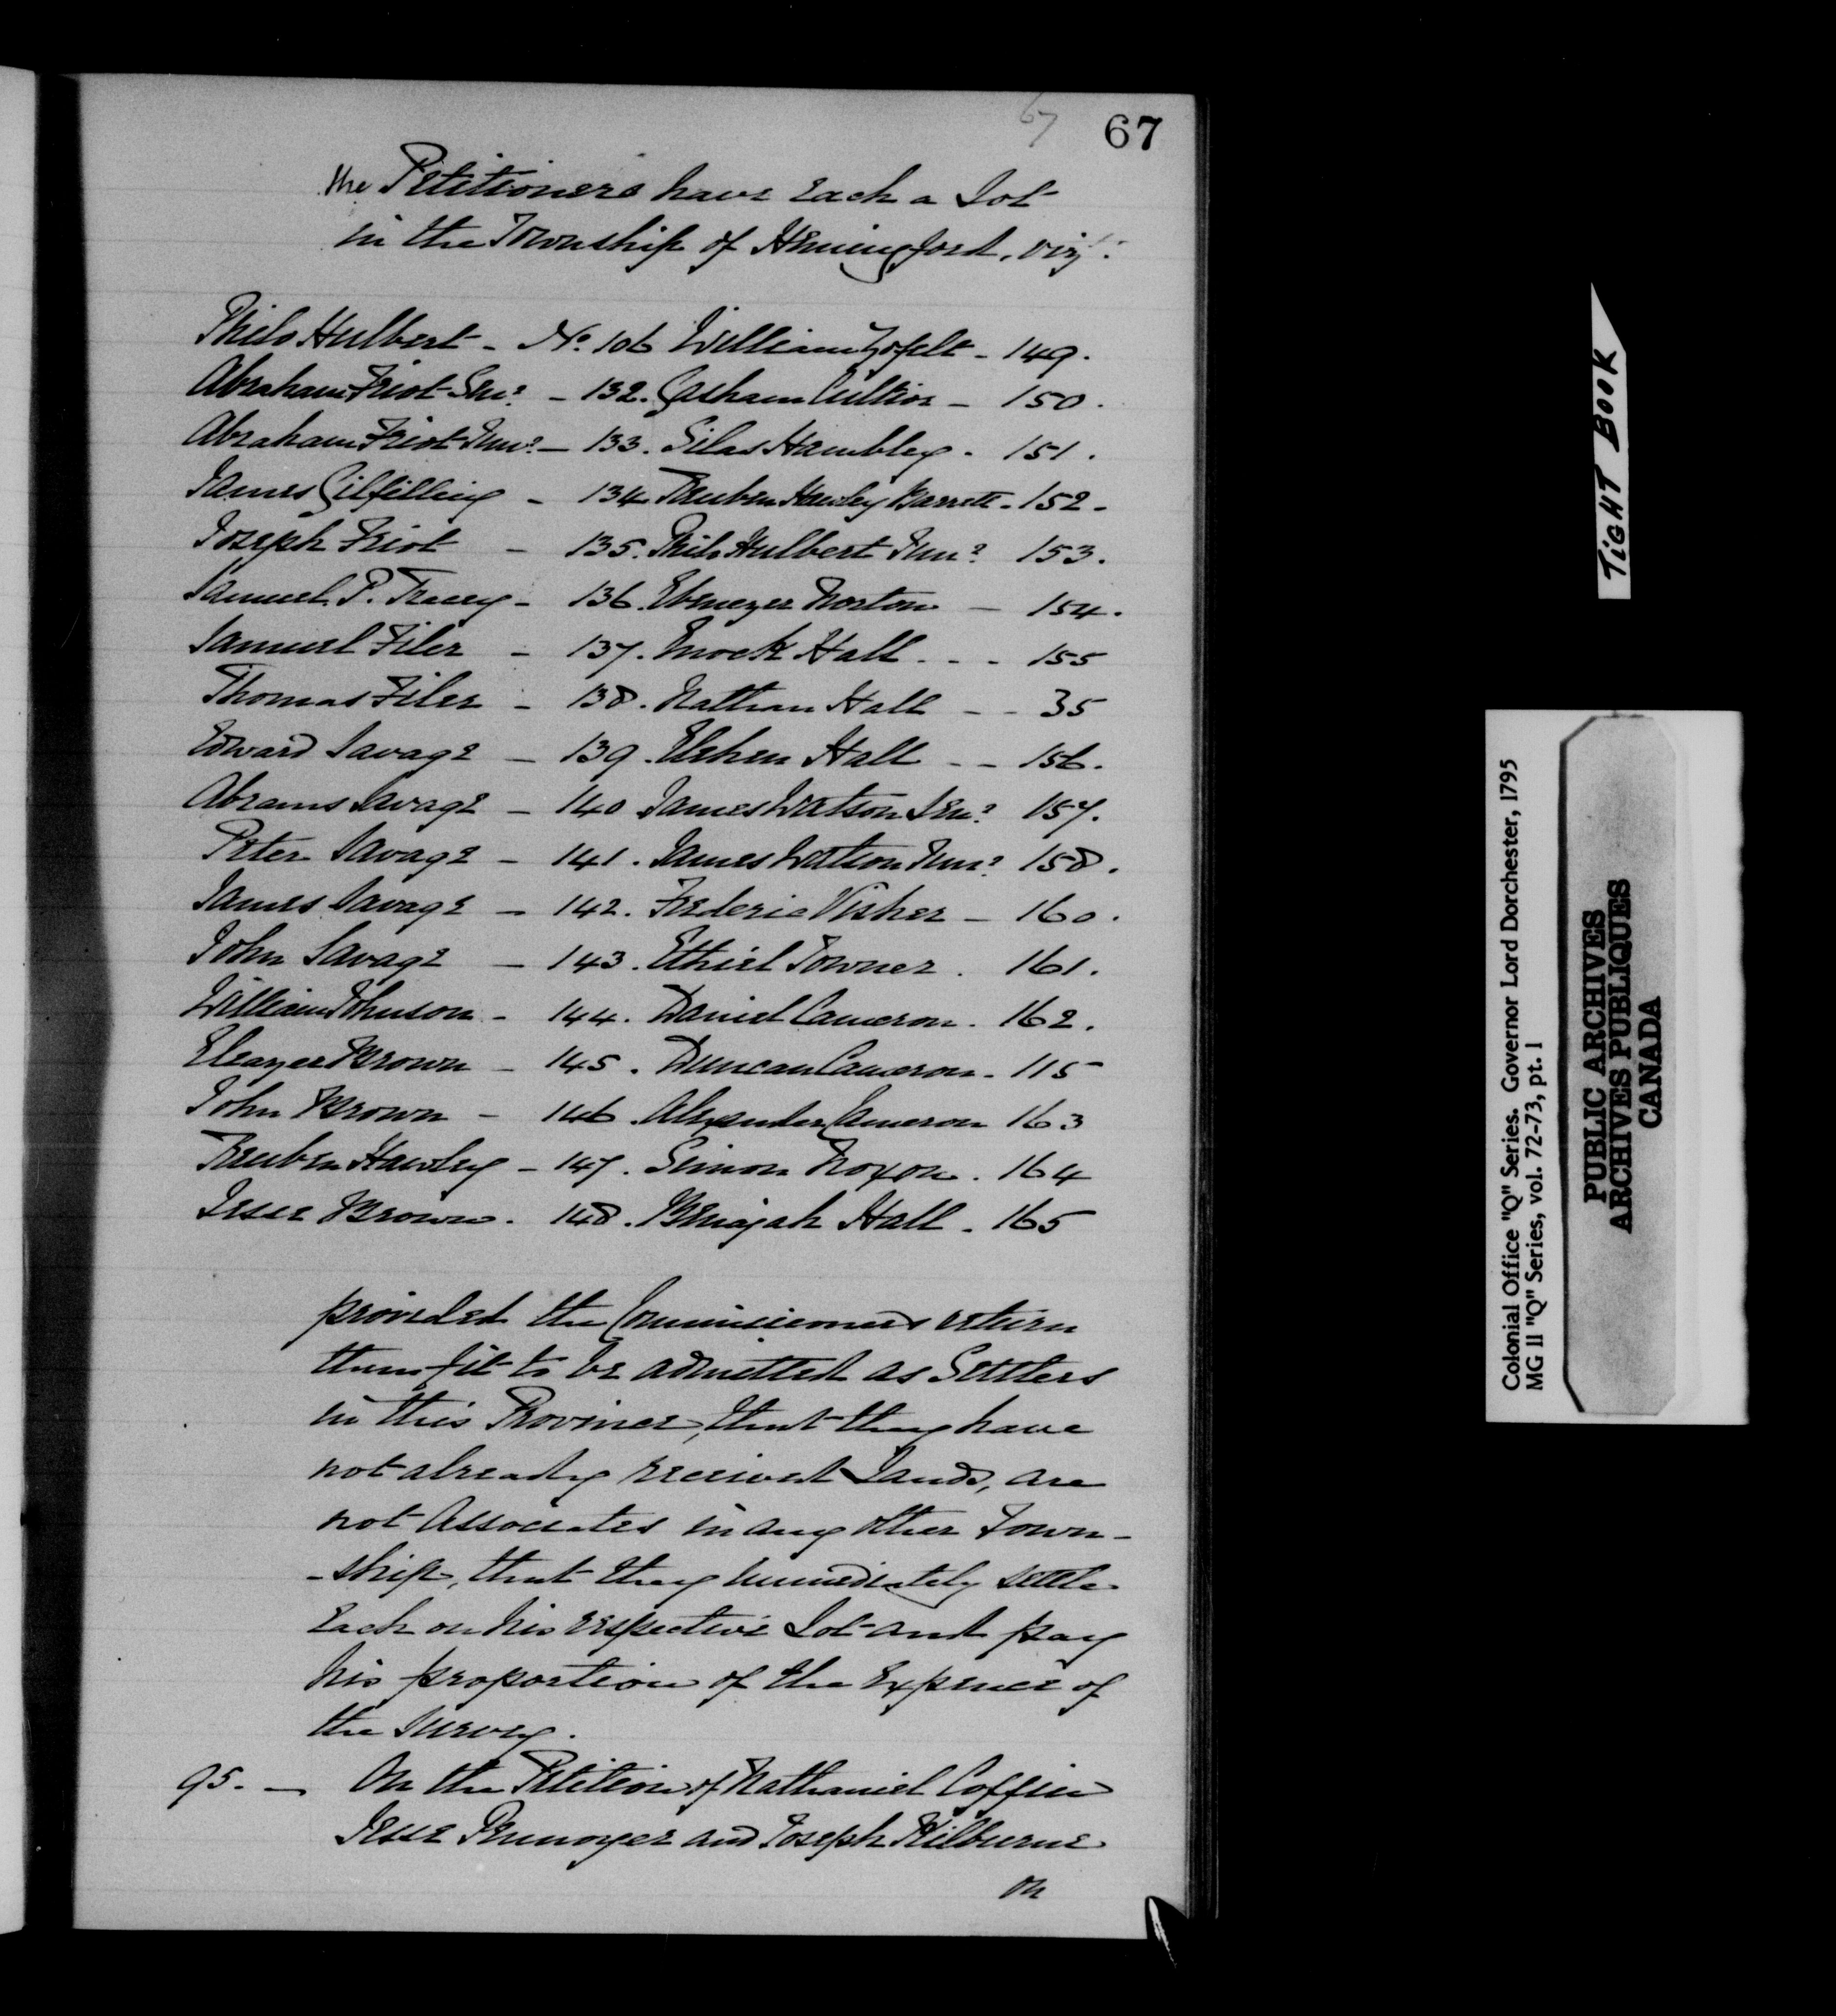 67
67
the Petitioners have each a Lot
in the Township of Hemingford, viz^t:
Philo Hulbert - No. 106 William - 149.
Abraham Friot Sen^r. - 132. Culver - 150.
Abraham Friot Jun^r. - 133. Silas Hambley - 151.
James Gilfilling - 134 Reuben Hawley Barrett - 152.
Joseph Friot - 135. Philo Hulbert Jun^r. 153.
Samuel P. Tracey - 136. Ebenezer Norton - 154.
Samuel Filer - 137. Enock Hall - - - 155
Thomas Filer - 138. Nathan Hall - - 35
Edward Savage - 139. Hall - - 156.
Abrams Savage - 140 James Watson Sen^r. 157.
Peter Savage - 141. James Watson Jun^r. 158.
James Savage - 142. Frederic Visher - 160.
John Savage - 143. Ethiel Towner. 161.
William Johnson - 144. Daniel Cameron. 162.
Eleazer Brown - 145. Duncan Cameron - 115
John Brown - 146. Alexander Cameron 163
Reuben Hawley - 147. Simon Noxon. 164
Jesse Brown. 148. Benajah Hall - 165
provided the Commissioners return
them fit to be admitted as Settlers
in this Province, that they have
not already received Lands, are
not Associates in any other Town-
-ship, that they immediately settle
each on his respective Lot and pay
his proportion of the expence of
the survey.
95. - On the Petition of Nathaniel Coffin
Jesse Pennoyer and Joseph Kilburne
on
TIGHT BOOK
Colonial Office "Q" Series. Governor Lord Dorchester, 1795
MG 11 "Q" Series, vol. 72-73, pt. 1
PUBLIC ARCHIVES
ARCHIVES PUBLIQUES
CANADA